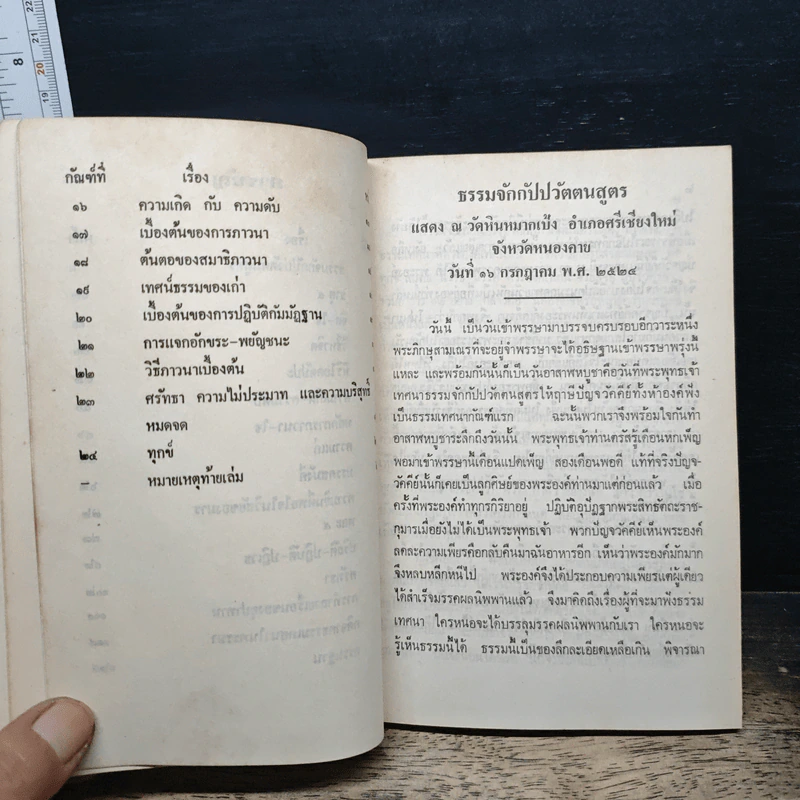 กัณฑ์ที่ เรื่อง
๑๖ ความเกิด กับ ความดับ
๑๗ เบื้องต้นของการภาวนา
๑๘ ต้นตอของสมาธิภาวนา
๑๙ เทศน์ธรรมของเก่า
๒๐ เบื้องต้นของการปฏิบัติกัมมัฏฐาน
๒๑ การแจกอักขระ-พยัญชนะ
๒๒ วิธีภาวนาเบื้องต้น
๒๓ ศรัทธา ความไม่ประมาท และความบริสุทธิ์
หมดจด
๒๔ ทุกข์
– หมายเหตุท้ายเล่ม
ธรรมจักกัปปวัตตนสูตร
แสดง ณ วัดหินหมากเป้ง อำเภอศรีเชียงใหม่
จังหวัดหนองคาย
วันที่ ๑๖ กรกฎาคม พ.ศ. ๒๕๒๔
วันนี้ เป็นวันเข้าพรรษามาบรรจบครบรอบอีกวาระหนึ่ง
พระภิกษุสามเณรที่จะอยู่จำพรรษาจะได้อธิษฐานเข้าพรรษาพรุ่งนี้
แหละ และพร้อมกันนั้นก็เป็นวันอาสาฬหบูชาคือวันที่พระพุทธเจ้า
เทศนาธรรมจักกัปปวัตตนสูตรให้ฤาษีปัญจวัคคีย์ทั้งห้าองค์ฟัง
เป็นธรรมเทศนากัณฑ์แรก ฉะนั้นพวกเราจึงพร้อมใจกันทำ
อาสาฬหบูชาระลึกถึงวันนั้น พระพุทธเจ้าท่านตรัสรู้เดือนหกเพ็ญ
พอมาเข้าพรรษานี้เดือนแปดเพ็ญ สองเดือนพอดี แท้ที่จริงปัญจ-
วัคคีย์นั้นก็เคยเป็นลูกศิษย์ของพระองค์ท่านมาแต่ก่อนแล้ว เมื่อ
ครั้งที่พระองค์ทำทุกรกิริยาอยู่ ปฏิบัติอุปัฏฐากพระสิทธัตถะราช-
กุมารเมื่อยังไม่ได้เป็นพระพุทธเจ้า พวกปัญจวัคคีย์เห็นพระองค์
ลดละความเพียรคือกลับคืนมาฉันอาหารอีก เห็นว่าพระองค์มักมาก
จึงหลบหลีกหนีไป พระองค์จึงได้ประกอบความเพียรแต่ผู้เดียว
ได้สำเร็จมรรคผลนิพพานแล้ว จึงมาคิดถึงเรื่องผู้ที่จะมาฟังธรรม
เทศนา ใครหนอจะได้บรรลุมรรคผลนิพพานกับเรา ใครหนอจะ
รู้เห็นธรรมนี้ได้ ธรรมนี้เป็นของลึกละเอียดเหลือเกิน พิจารณา